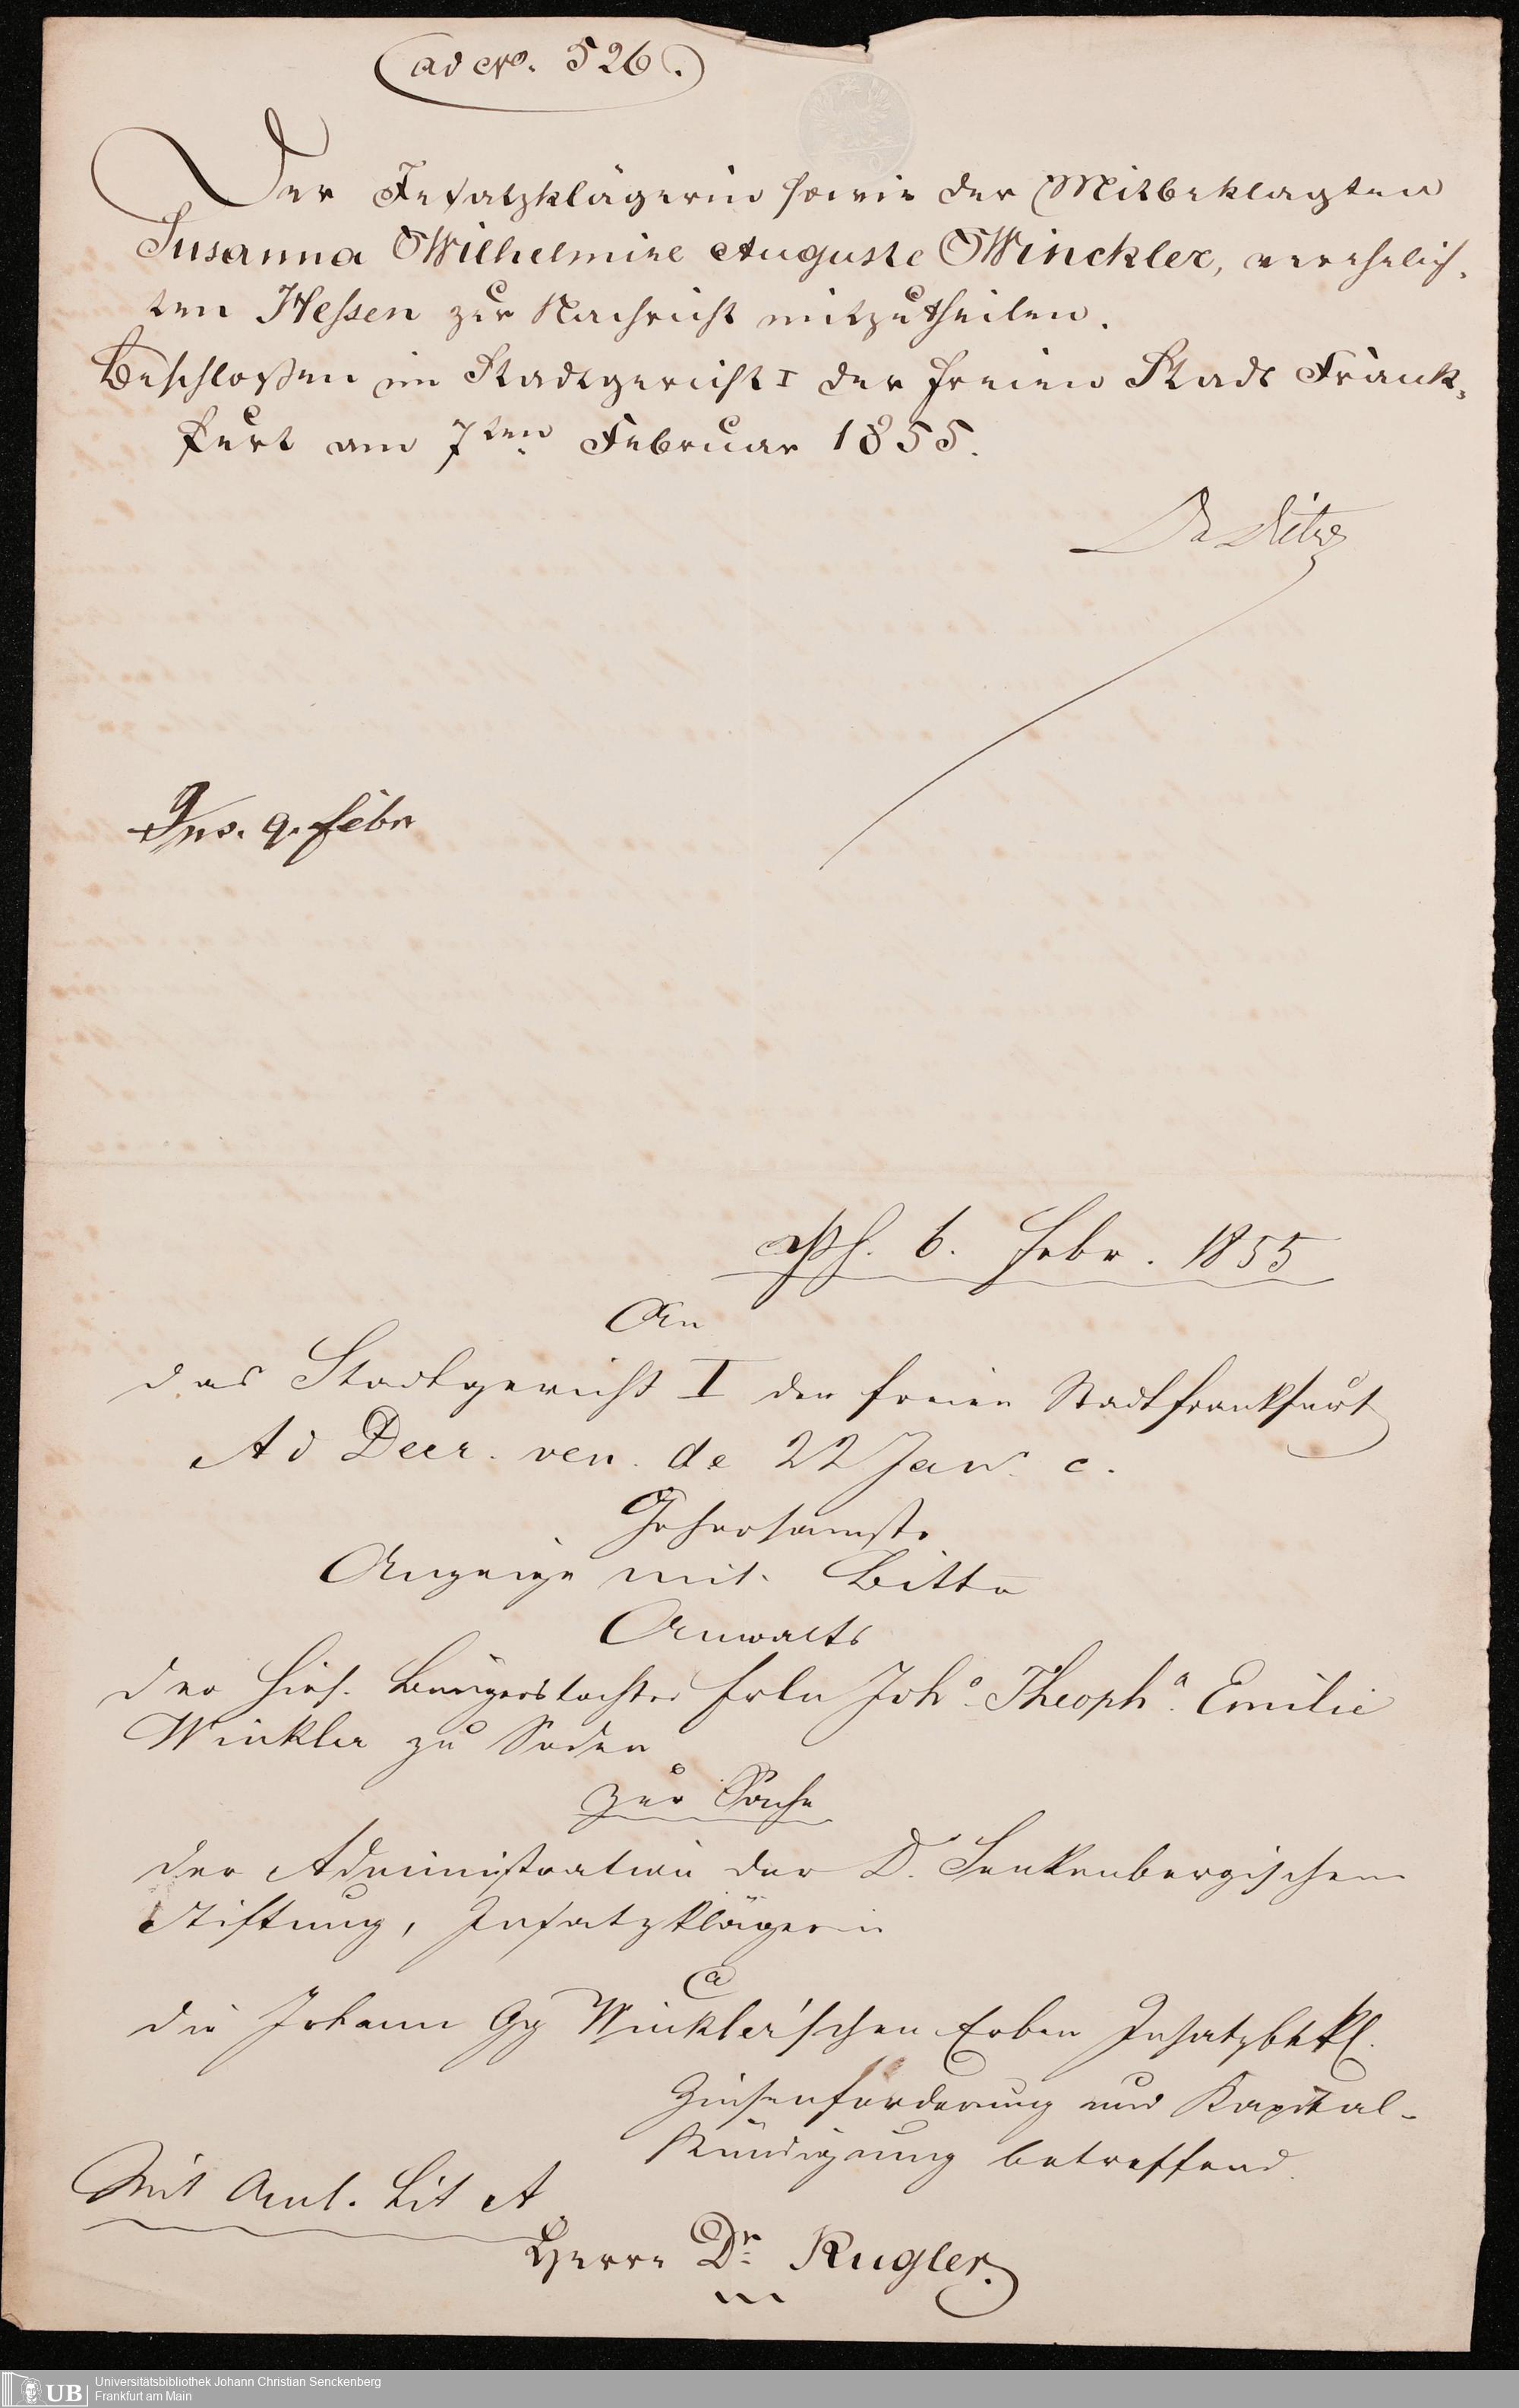 ad No. 526.
Der Insatzklägerin sowie der Mitbeklagten
Susanna Wilhelmine Auguste Winckler, verehelich-
ten Heßen zur Nachricht mitzutheilen.
Beschloßen im Stadtgericht I der freien Stadt Frank-
furt am 7ten Februar 1855.
Ins. 9. Febr
Ps. 6. Febr. 1855
An
das Stadtgericht I der freien Stadt Frankfurt
Ad Decr. ven. de 22 Jan. c.
Gehorsamste
Anzeige mit Bitte
Anwalts
der hies. Bürgerstochter Frln Joha. Theopha. Emilie
Winkler zu Soden
zur Sache
der Administration der D. Senkenbergischen
Stiftung, Insatzklägerin
ca
die Johann Gg Winkler'schen Erben Insatzbekl.
Zinsenforderung und Kapital-
Kündigung betreffend.
Mit Anl. Lit A
Herrn Dr. Kugler.
UB
Universitätsbibliothek Johann Christian Senckenberg
Frankfurt am Main